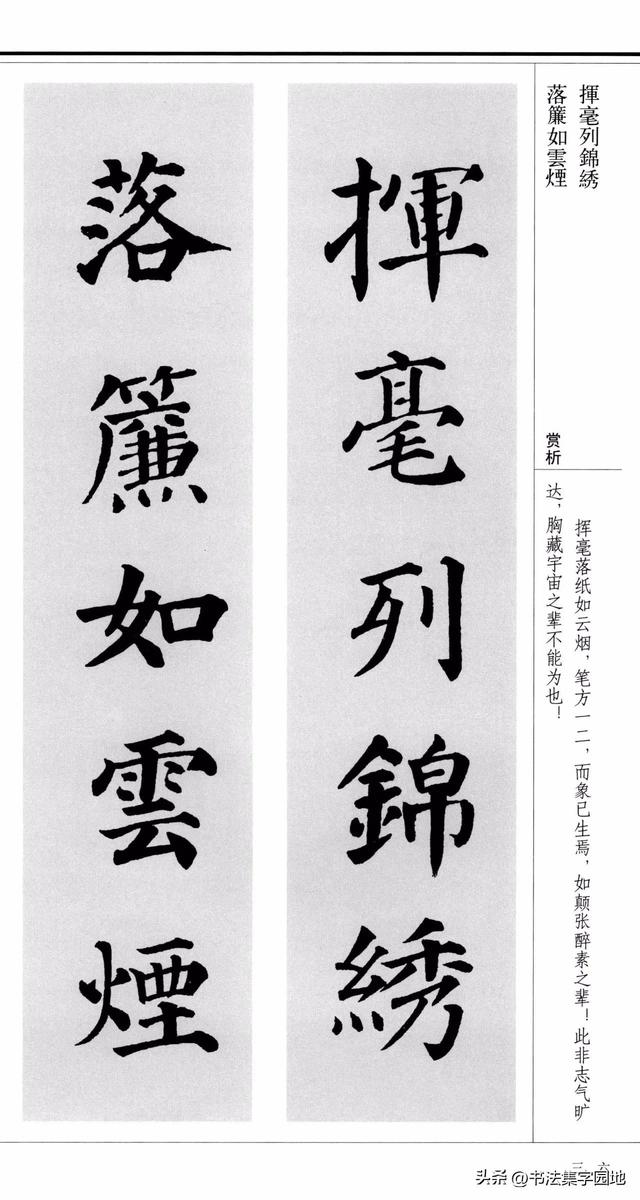 揮毫列錦綉
落簾如雲煙
赏析
挥毫落纸如云烟，笔方一二，而象已生焉，如颠张醉素之辈！此非志气旷
达，胸藏宇宙之辈不能为也！
揮毫列錦綉
落簾如雲煙
三六
头条 @书法集字园地